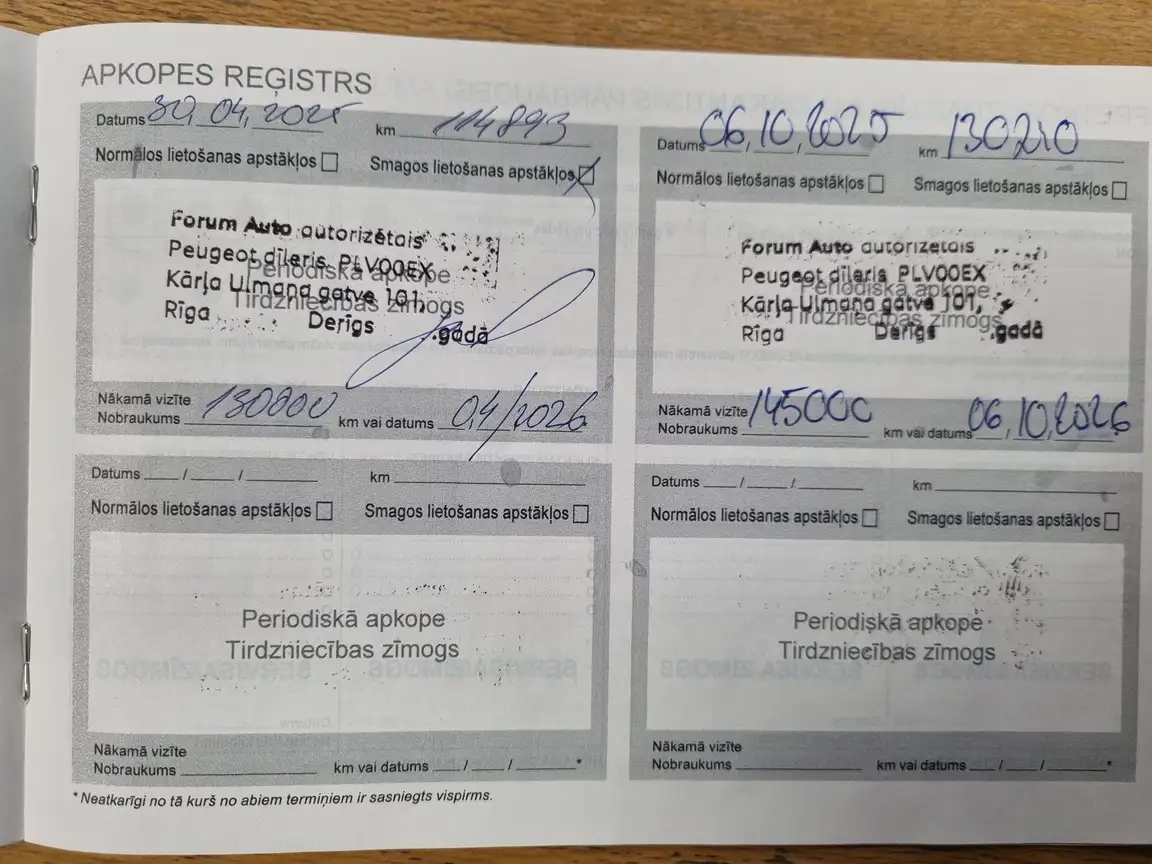 APKOPES REĢISTRS
Datums 30, 04, 2025 km 114893
Normālos lietošanas apstākļos Smagos lietošanas apstākļos
Forum Auto autorizētais
Peugeot dīleris PLV00EX
Periodiskā apkope
Kārļa Ulmaņa gatve 101,
Tirdzniecības zīmogs
Rīga Derīgs .gadā
Nākamā vizīte
Nobraukums 130000 km vai datums 04/2026
Datums 06, 10, 2025 km 130210
Normālos lietošanas apstākļos Smagos lietošanas apstākļos
Forum Auto autorizētais
Peugeot dīleris PLV00EX
Periodiskā apkope
Kārļa Ulmaņa gatve 101,
Tirdzniecības zīmogs
Rīga Derīgs .gadā
Nākamā vizīte
Nobraukums 145000 km vai datums 06, 10, 2026
Datums / / km
Normālos lietošanas apstākļos Smagos lietošanas apstākļos
Periodiskā apkope
Tirdzniecības zīmogs
Nākamā vizīte
Nobraukums km vai datums / / *
Datums / / km
Normālos lietošanas apstākļos Smagos lietošanas apstākļos
Periodiskā apkope
Tirdzniecības zīmogs
Nākamā vizīte
Nobraukums km vai datums / / *
* Neatkarīgi no tā kurš no abiem termiņiem ir sasniegts vispirms.